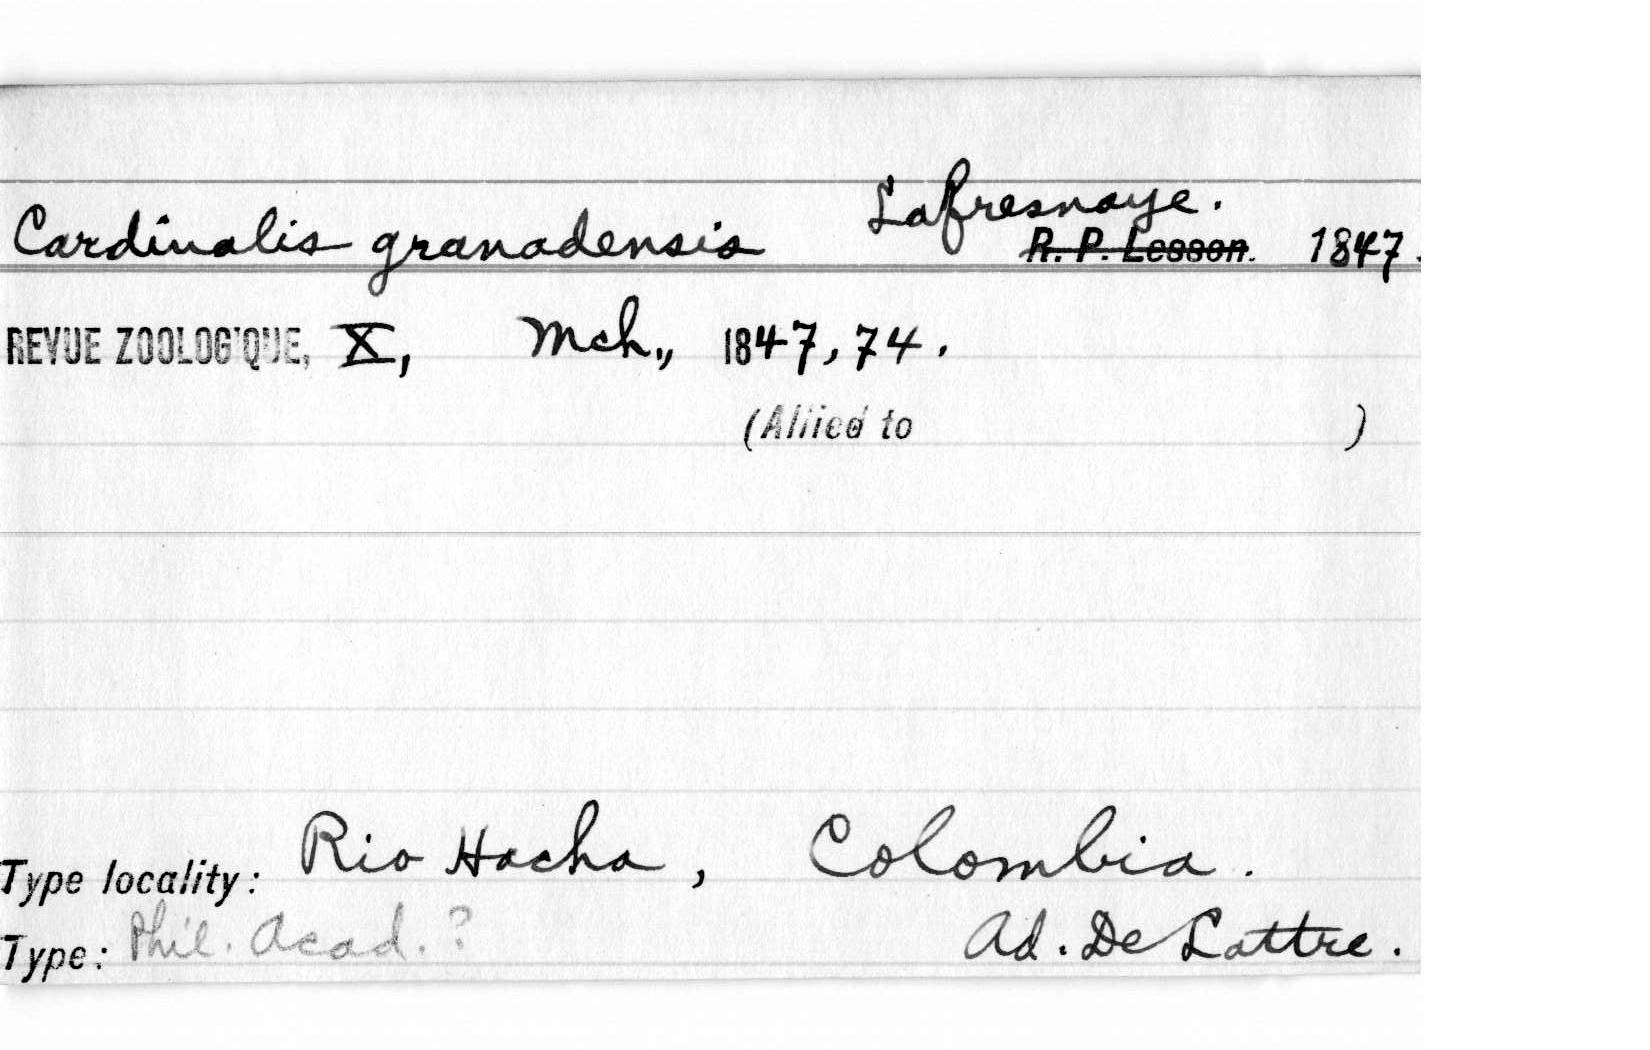 Lafresnaye.
Cardinalis granadensis R. P. Lesson. 1847.
REVUE ZOOLOGIQUE, X, Mch., 1847, 74.
(Allied to )
Type locality: Rio Hacha, Colombia.
Type: Phil. Acad. ? Ad. De Lattre.